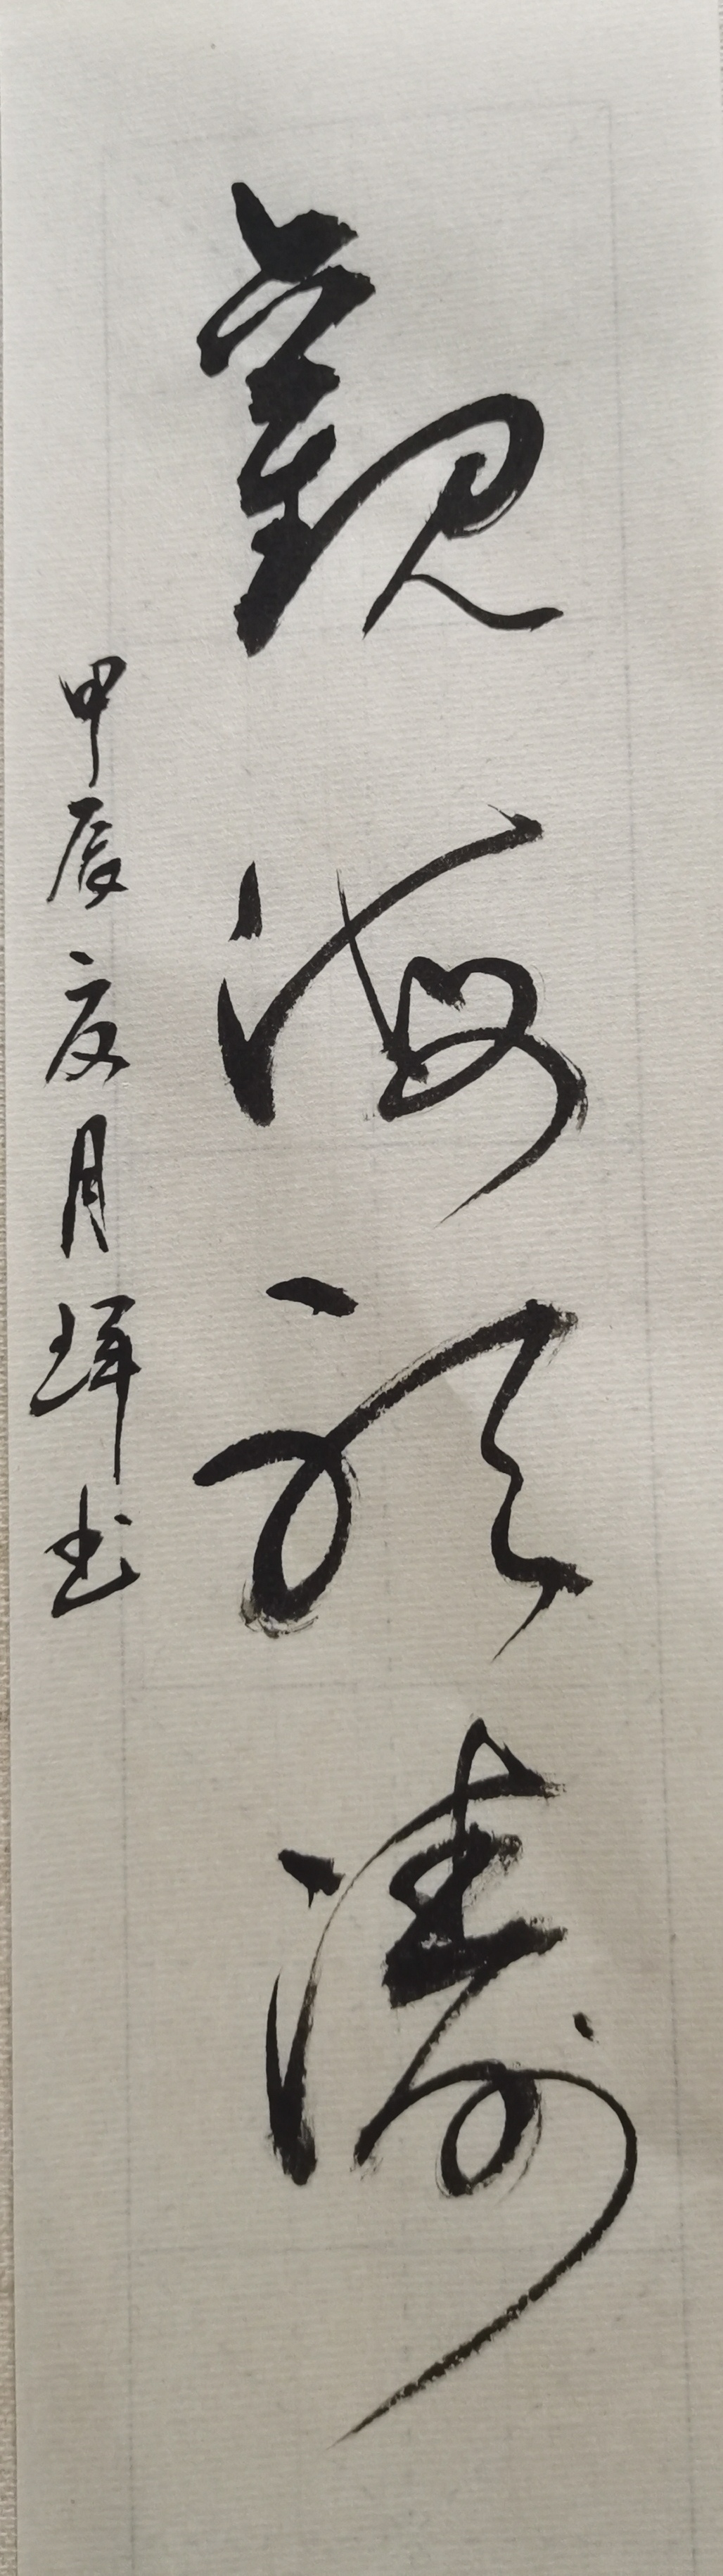 觀海聽濤
甲辰夏月珲书